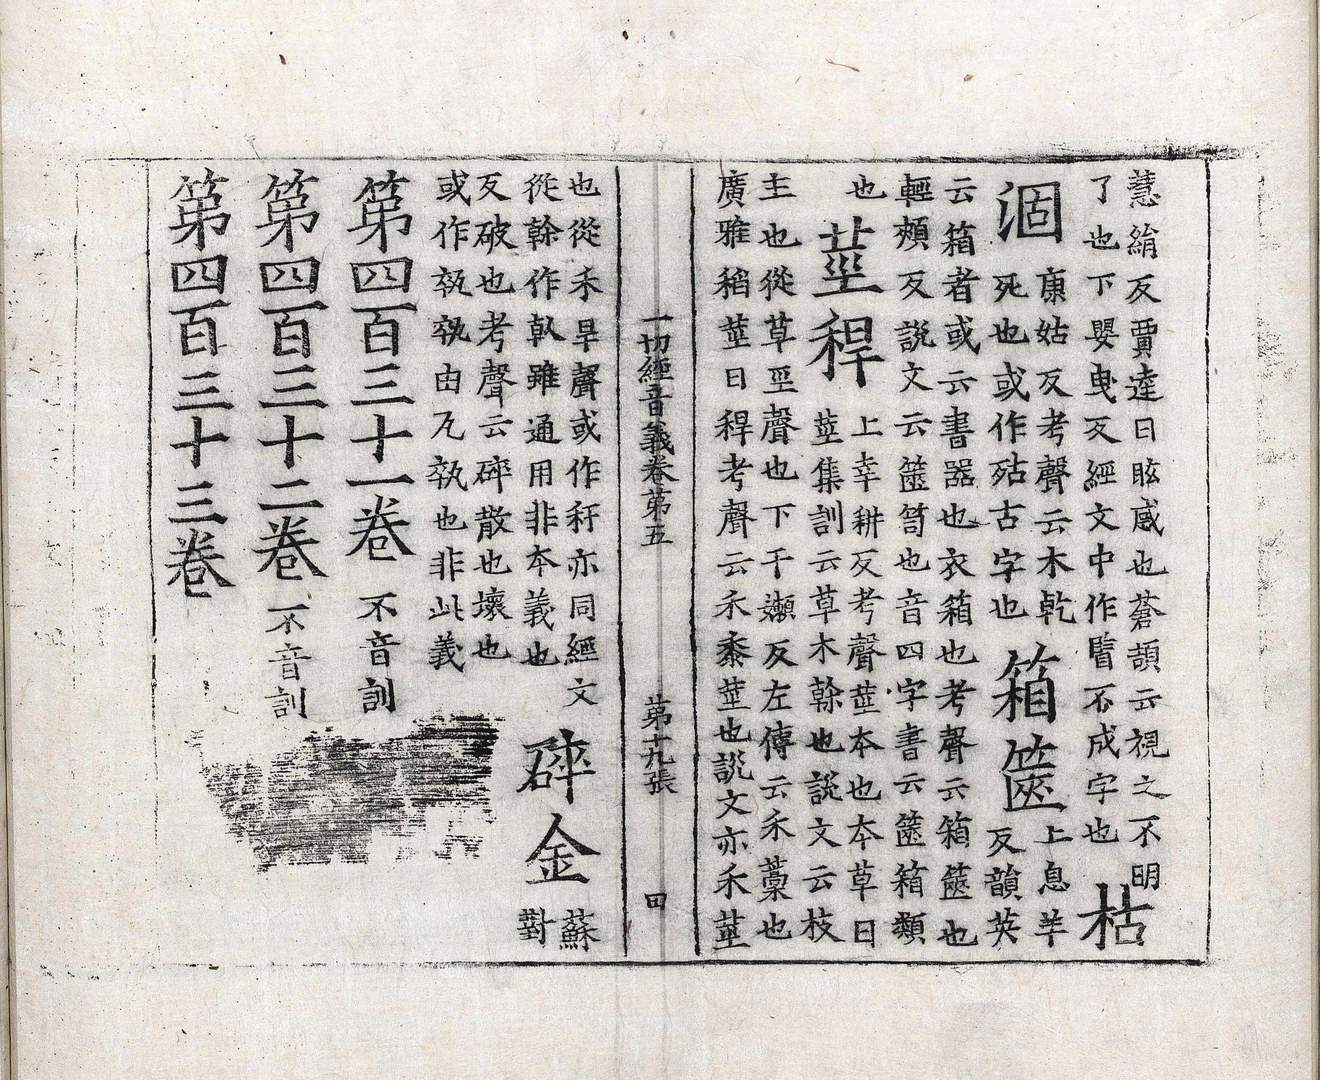 慧絹反賈逵曰眩惑也蒼頡云視之不明
了也下嬰曳反經文中作瞖不成字也
枯
涸
康姑反考聲云木乾
死也或作㱠古字也
箱篋
上息羊
反韻英
云箱者或云書器也衣箱也考聲云箱篋也
輕頰反說文云篋笥也音四字書云篋箱類
也
莖稈
上幸耕反考聲莖本也本草曰
莖集訓云草木幹也說文云枝
主也從草巠聲也下干嬾反左傳云禾藁也
廣雅稻莖曰稈考聲云禾黍莖也說文亦禾莖
一切經音義卷第五 第十九張 田
也從禾旱聲或作秆亦同經文
從幹作雖通用非本義也
碎金
蘇
對
反破也考聲云碎散也壞也
或作執執由瓦執也非此義
第四百三十一卷 不音訓
第四百三十二卷 不音訓
第四百三十三卷